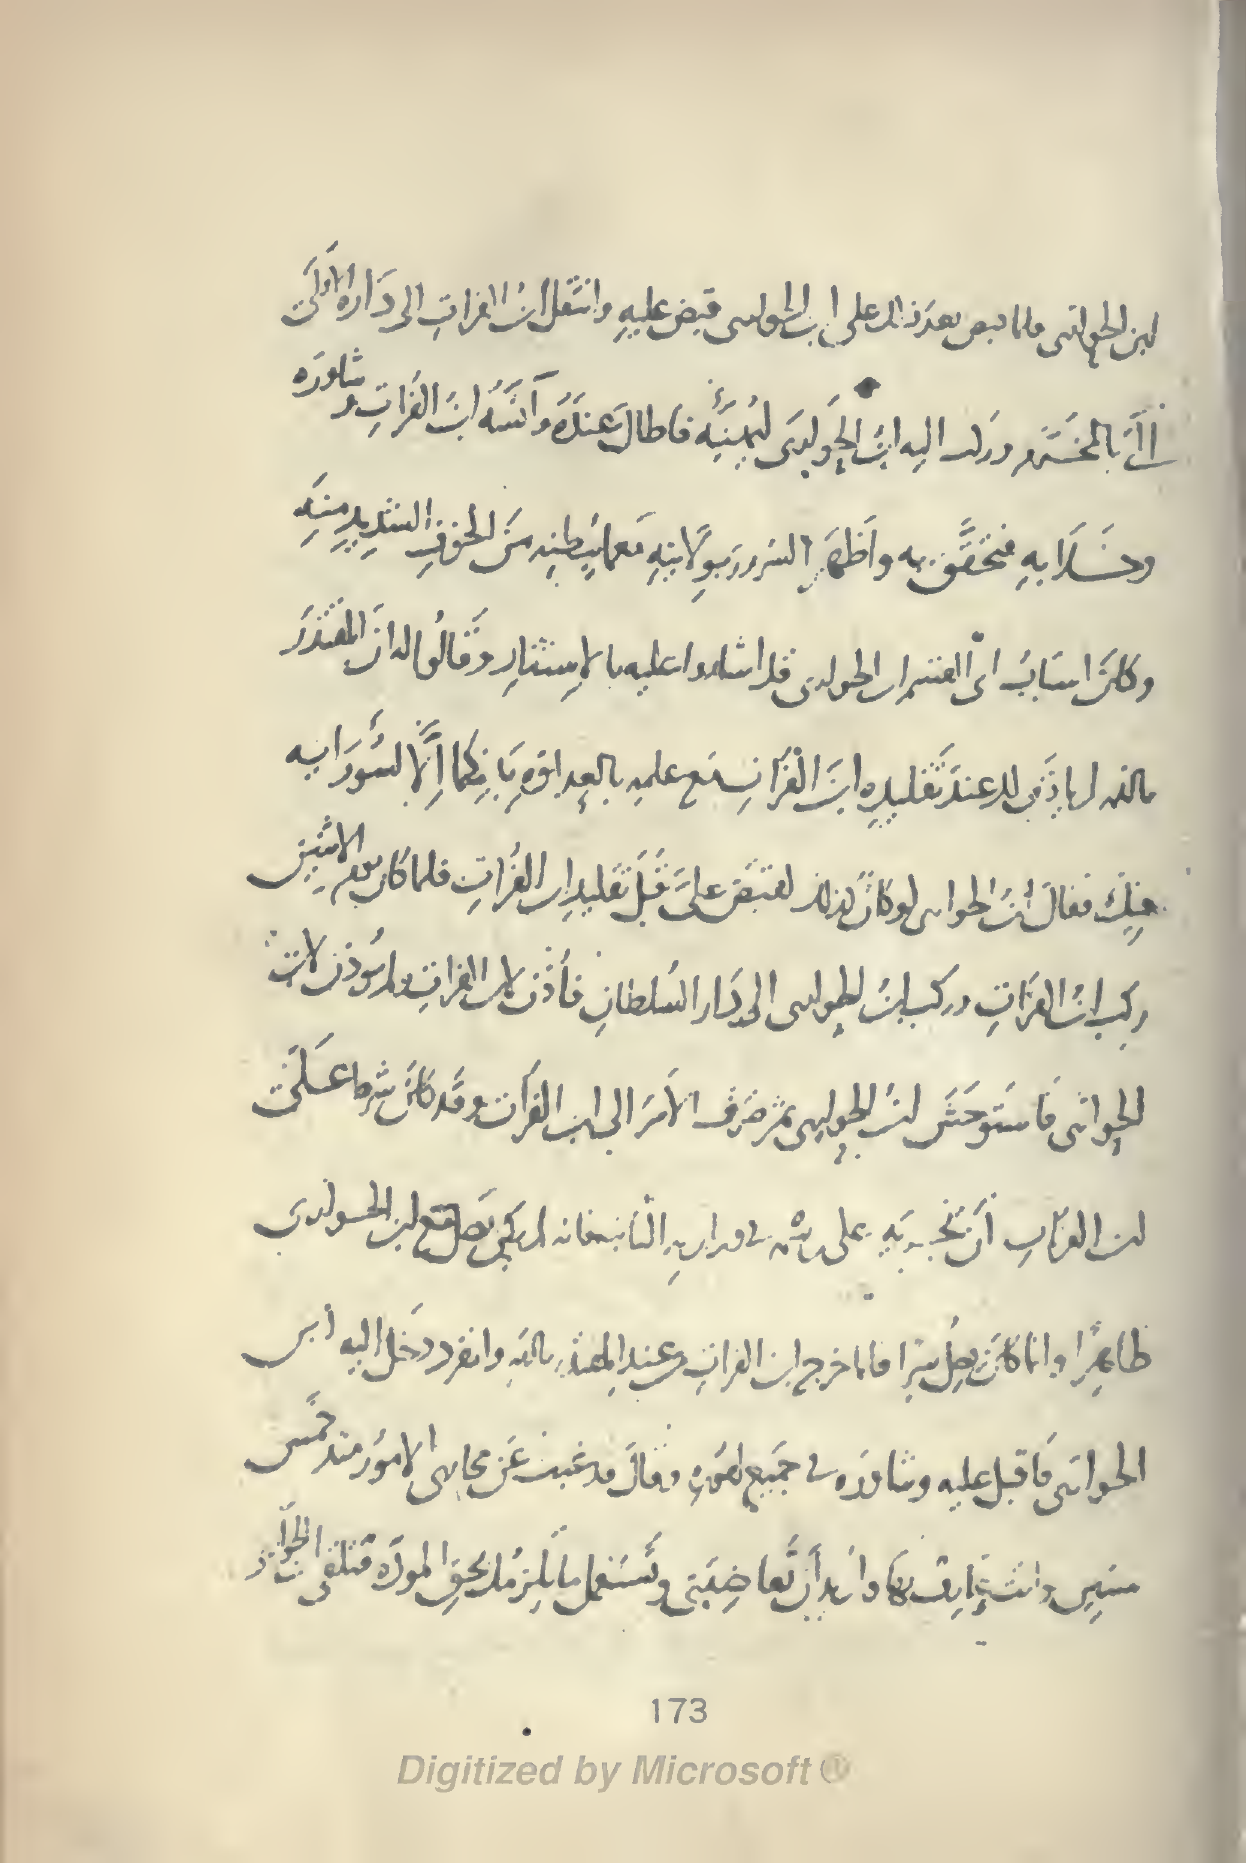 ابن الحواتى فلما قبض بعد ذلك على ابن الحوارى قبض عليه وانتقل ابن الفرات الى داره الاولى
التى بالمخرّم وركب اليه ابن الحَوارى ليُهنِّيه فاطال عنده وآنسَه ابن الفرات وشاوره
وخَلا به فتحقَّق به واَظهَر السرور بولايته مع ما يبطنه من الخوف الشديد منه
وكان اسباب ابى القسم ابن الحوارى قد اشاروا عليه بالاستتار وقالوا له ان المقتدر
بالله لم ياذن لك عند تقليده ابن الفرات مع علمه بالعداوة بينكما اِلّا لسُوء رايه
فيك فقال ابن الحوارى لو كان كذلك لقبض علىّ قبل تقليد ابن الفرات فلما كان يوم الاثنين
ركب ابن الفرات وركب ابن الحوارى الى دار السلطان فأذن لابن الفرات ولم يُؤذن لابن
الحوارى فاستوحش ابن الحوارى ثم صرف الاَمر الى ابن الفرات وقد كان شرط على
ابن الفرات أن يجريه على رسمه فى وزارته الثانية فانه لم يكن يصل مع ابن الحوارى
ظاهرًا وانما كان يصل سرا فلما خرج ابن الفرات من عند المقتدر بالله وانفرد دخل اليه ابن
الحوارى فاقبل عليه وشاوره فى جميع اموره وقال قد غبت عن مجارى الامور منذ خمس
سنين وانت عارف بها واريد أن تعاضدنى وتستعمل ما يلزمك بحق المودّه فتلقى ابن الحوارى
173
Digitized by Microsoft ®